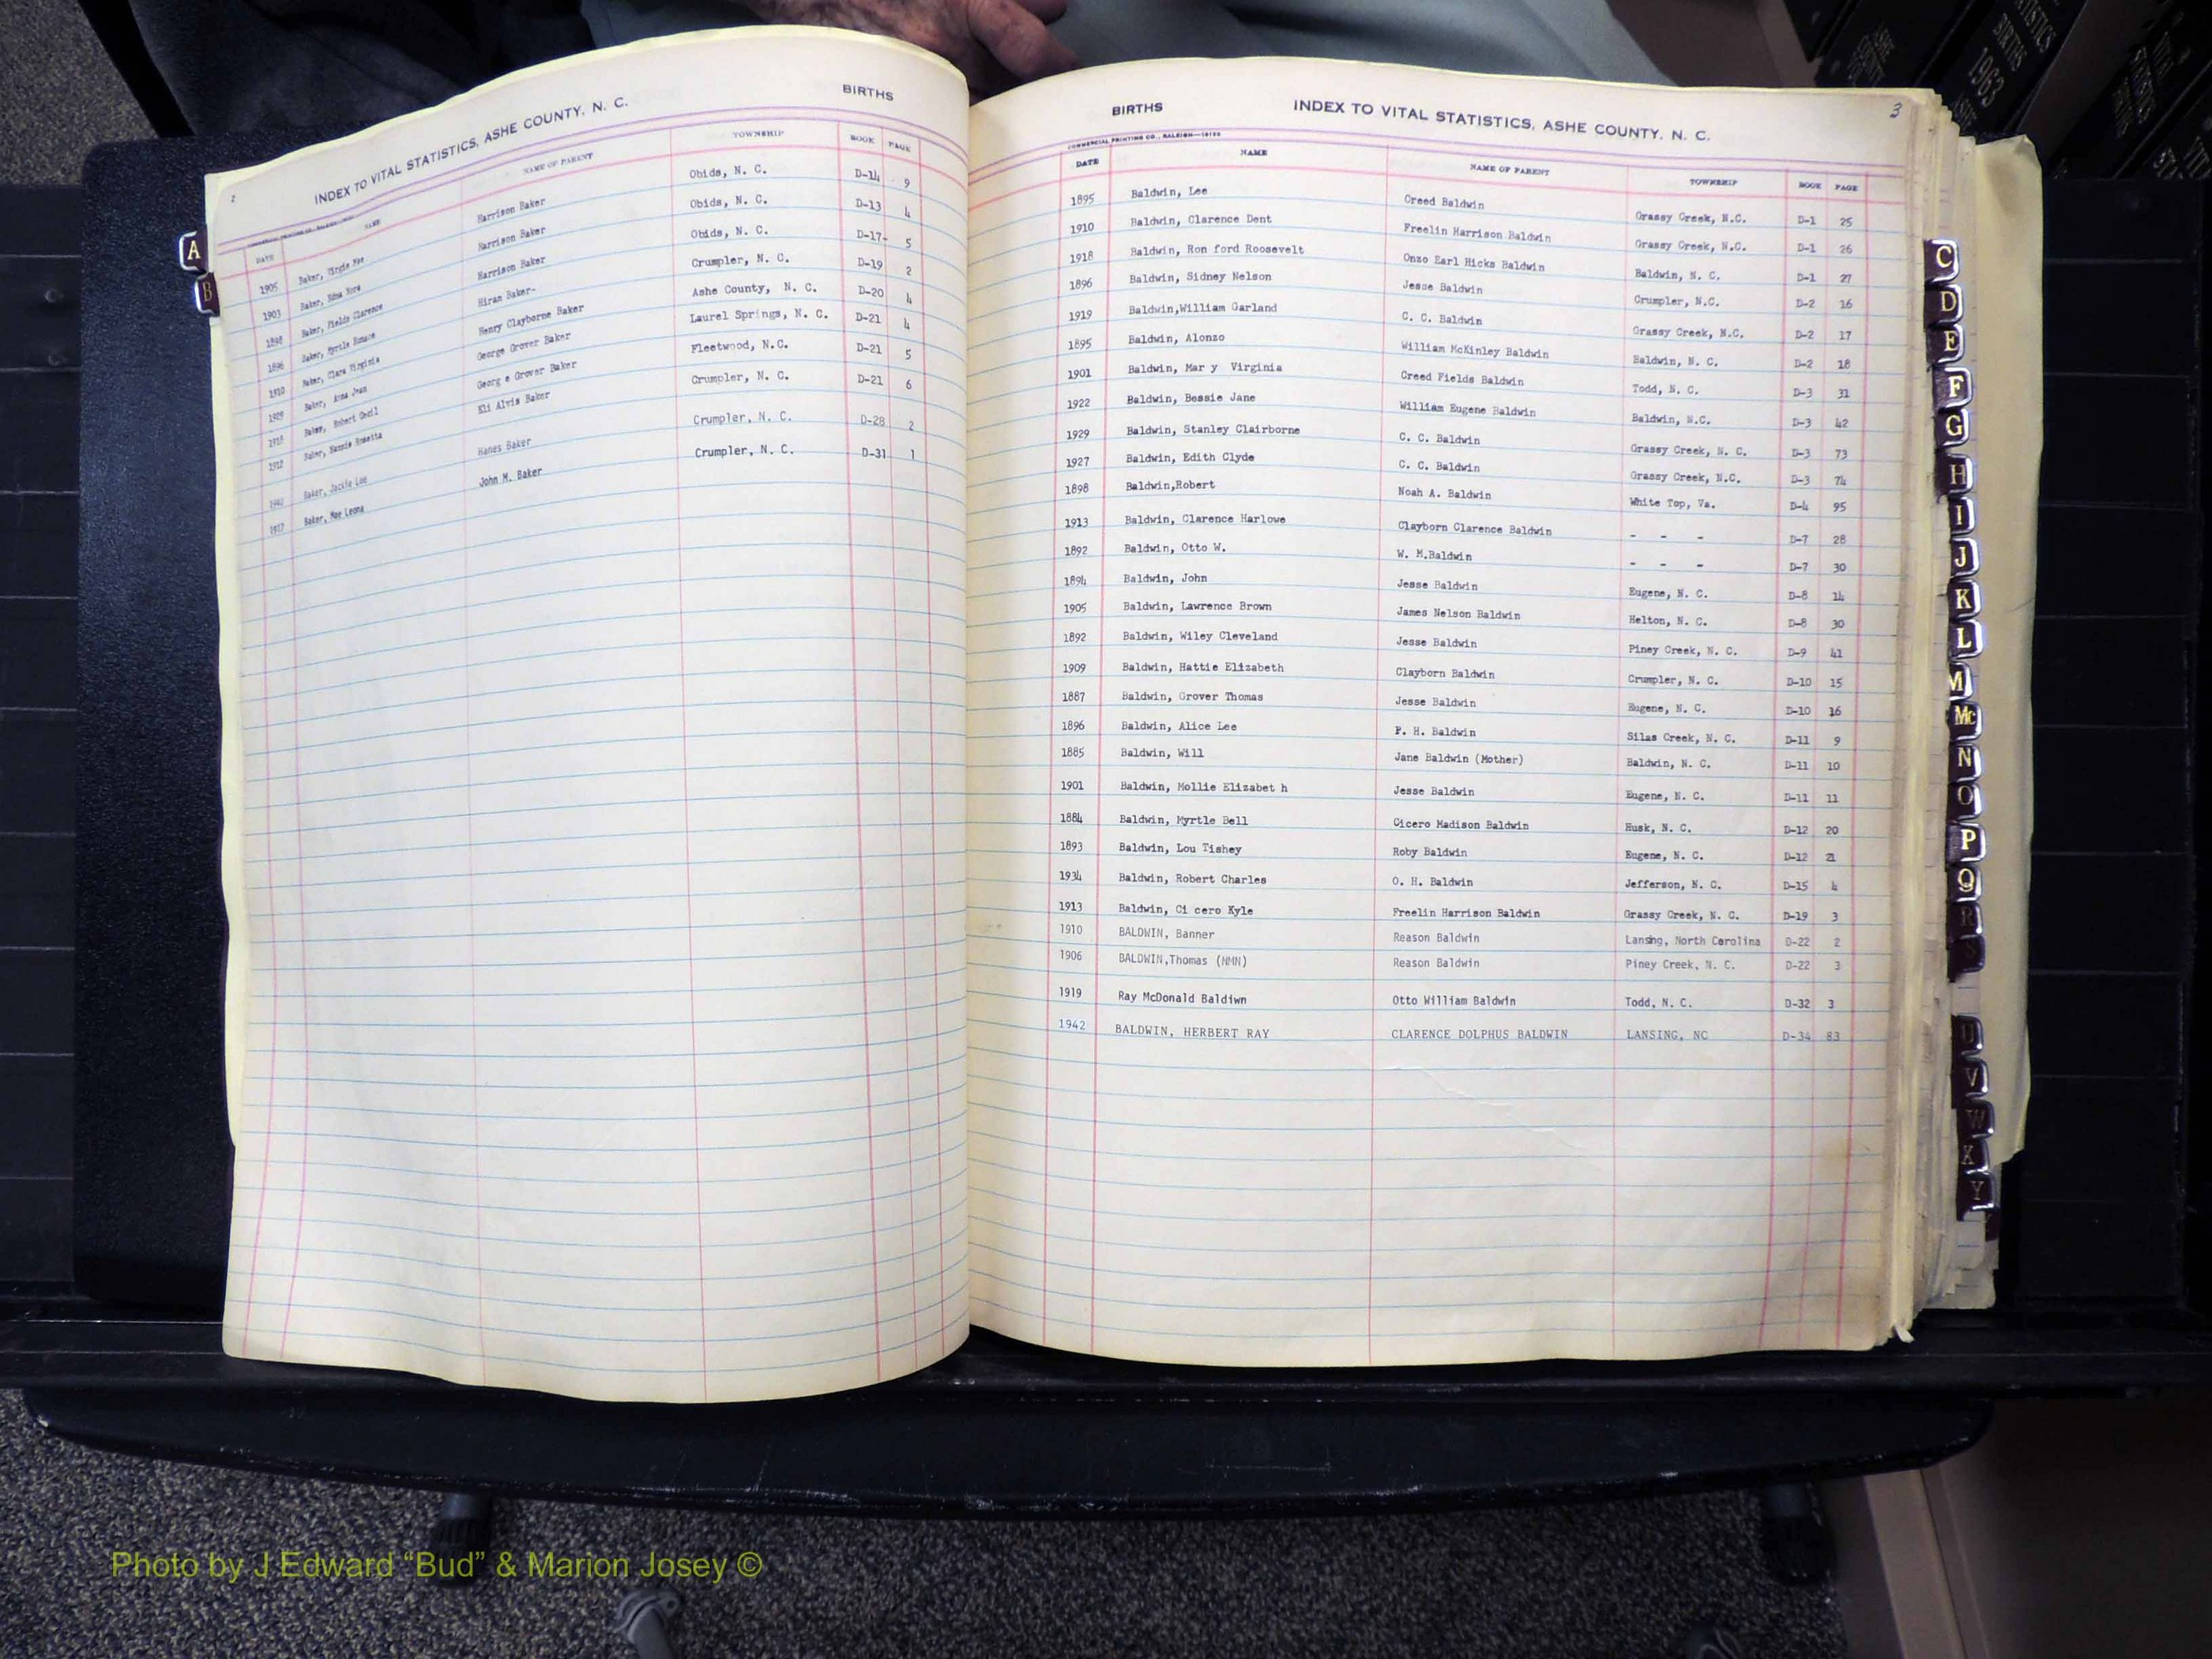 2
INDEX TO VITAL STATISTICS, ASHE COUNTY, N. C. BIRTHS
DATE NAME NAME OF PARENT TOWNSHIP BOOK PAGE
1905 Baker, Virgie Mae Harrison Baker Obids, N. C. D-14 9
1903 Baker, Edna Nora Harrison Baker Obids, N. C. D-13 4
1898 Baker, Fields Clarence Harrison Baker Obids, N. C. D-17- 5
1896 Baker, Myrtle Hiram Baker- Crumpler, N. C. D-19 2
1910 Baker, Clara Virginia Henry Clayborne Baker Ashe County, N. C. D-20 4
Baker, Anna Jean George Grover Baker Laurel Springs, N. C. D-21 4
Baker, Robert Cecil Georg e Grover Baker Fleetwood, N.C. D-21 5
1912 Baker, Nannie Rosetta Eli Alvis Baker Crumpler, N. C. D-21 6
Baker, Jackie Lee Hanes Baker Crumpler, N. C. D-28 2
1917 Baker, Mae Leona John M. Baker Crumpler, N. C. D-31 1
A
B
BIRTHS INDEX TO VITAL STATISTICS, ASHE COUNTY, N. C. 3
COMMERCIAL PRINTING CO., RALEIGH
DATE NAME NAME OF PARENT TOWNSHIP BOOK PAGE
1895 Baldwin, Lee Creed Baldwin Grassy Creek, N.C. D-1 25
1910 Baldwin, Clarence Dent Freelin Harrison Baldwin Grassy Creek, N.C. D-1 26
1918 Baldwin, Ron ford Roosevelt Onzo Earl Hicks Baldwin Baldwin, N. C. D-1 27
1896 Baldwin, Sidney Nelson Jesse Baldwin Crumpler, N.C. D-2 16
1919 Baldwin,William Garland C. C. Baldwin Grassy Creek, N.C. D-2 17
1895 Baldwin, Alonzo William McKinley Baldwin Baldwin, N. C. D-2 18
1901 Baldwin, Mar y Virginia Creed Fields Baldwin Todd, N. C. D-3 31
1922 Baldwin, Bessie Jane William Eugene Baldwin Baldwin, N.C. D-3 42
1929 Baldwin, Stanley Clairborne C. C. Baldwin Grassy Creek, N. C. D-3 73
1927 Baldwin, Edith Clyde C. C. Baldwin Grassy Creek, N.C. D-3 74
1898 Baldwin,Robert Noah A. Baldwin White Top, Va. D-4 95
1913 Baldwin, Clarence Harlowe Clayborn Clarence Baldwin - - - D-7 28
1892 Baldwin, Otto W. W. M.Baldwin - - - D-7 30
1894 Baldwin, John Jesse Baldwin Eugene, N. C. D-8 14
1905 Baldwin, Lawrence Brown James Nelson Baldwin Helton, N. C. D-8 30
1892 Baldwin, Wiley Cleveland Jesse Baldwin Piney Creek, N. C. D-9 41
1909 Baldwin, Hattie Elizabeth Clayborn Baldwin Crumpler, N. C. D-10 15
1887 Baldwin, Grover Thomas Jesse Baldwin Eugene, N. C. D-10 16
1896 Baldwin, Alice Lee P. H. Baldwin Silas Creek, N. C. D-11 9
1885 Baldwin, Will Jane Baldwin (Mother) Baldwin, N. C. D-11 10
1901 Baldwin, Mollie Elizabet h Jesse Baldwin Eugene, N. C. D-11 11
1884 Baldwin, Myrtle Bell Cicero Madison Baldwin Husk, N. C. D-12 20
1893 Baldwin, Lou Tishey Roby Baldwin Eugene, N. C. D-12 21
1934 Baldwin, Robert Charles O. H. Baldwin Jefferson, N. C. D-15 4
1913 Baldwin, Ci cero Kyle Freelin Harrison Baldwin Grassy Creek, N. C. D-19 3
1910 BALDWIN, Banner Reason Baldwin Lansing, North Carolina D-22 2
1906 BALDWIN,Thomas (NMN) Reason Baldwin Piney Creek, N. C. D-22 3
1919 Ray McDonald Baldiwn Otto William Baldwin Todd, N. C. D-32 3
1942 BALDWIN, HERBERT RAY CLARENCE DOLPHUS BALDWIN LANSING, NC D-34 83
C
D
E
F
G
H
I
J
K
L
M
Mc
N
O
P
Q
R
S
U
V
W
X
Y
BIRTHS
1963
Photo by J Edward “Bud” & Marion Josey ©